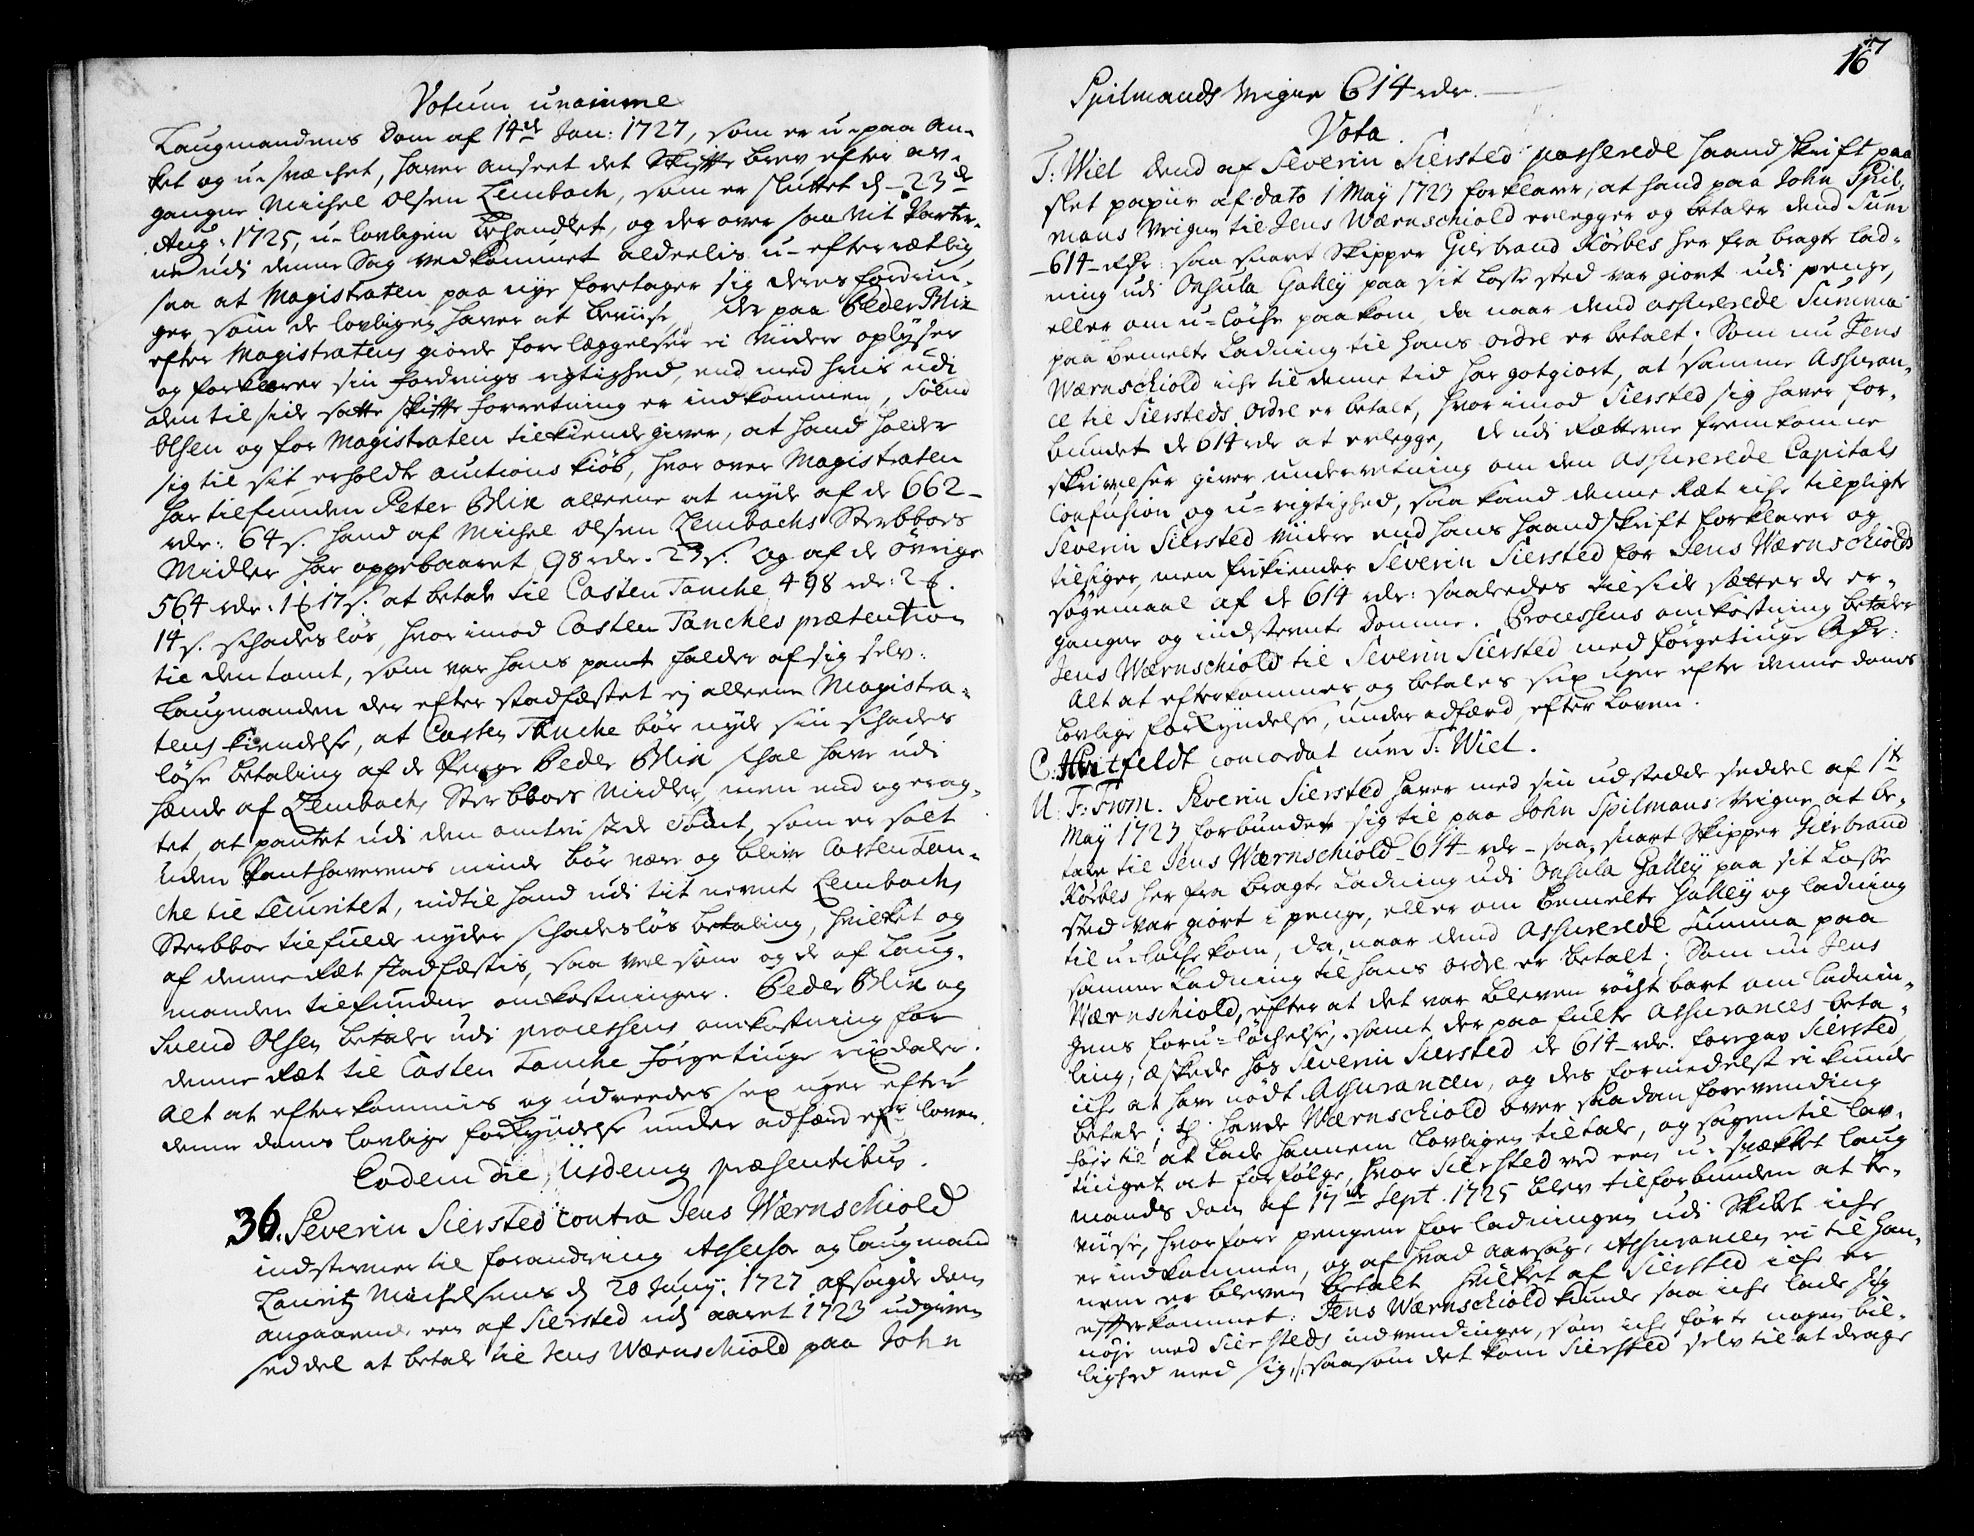 Votum unanime
Laugmandens Dom af 14de Jan: 1727, som er u-paa an-
ket og u-svæchet, haver anseet det Skifte brev efter af-
gangne Michel Olsen Lembach, som er sluttet d. 23de
Aug: 1725, u-lovligen behandlet, og der over saa vit Parter-
ne udi denne Sag vedkommet aldeelis u-efterrætlig
saa at Magistraten paa nye foretager sig deres fordrin-
ger som de lovligen haver at beviise, der paa Peder Blix
efter Magistratens giorde forelæggelser ei viidere oplyser
og forklarer sin fordrings rigtighed, end med hvis udi
den til side satte skifte forretning er indkommen, Svend
Olsen og for Magistraten tilkiende giver, at hand holder
sig til sit erholdte auctions kiøb, hvor over Magistraten
har tilfunden Peter Blix alleene at nyde af de 662-
rdr: 64 s. hand af Michel Olsen Lembachs Sterbboes
Midler har oppebaaret 98 rdr. 23 s. og af de øvrige
564 rdr. 1 ß 17 s: at betale til Casten Tanche 498 rdr: 2 ß.
14 s. schadesløs, hvor imod Casten Tanches prætention
til den tomt, som var hans pant falder af sig selv.
Laugmanden der efter stadfæstet ej alleene Magistra-
tens kiendelse, at Casten Tanche bør nyde sin schades
løse betaling af de Penge Peder Blix schal have udi
hænde af Lembachs Sterbboes Midler, men end og erag-
tet, at pantet udi den omtvistede Tomt, som er solt
uden Panthaverens minde bør være og blive Casten Tan-
che til Securitet, indtil hand udi tit nevnte Lembachs
Sterbboe tilfulde nyder schadesløs betaling, hvilket og
af denne Ræt stadfæstis, saa vel som og de af Laug-
manden tilfundne omkostninger. Peder Blix og
Svend Olsen betaler udi processens omkostning for
denne Ræt til Casten Tanche førgetiuge rixdaler.
Alt at efterkommis og udreedes sex uger efter
denne doms lovlige forkyndelse under adfærd efter loven.
Eodem die, iisdemq præsentibus.
36. Severin Siersted contra Jens Wærnschiold
indstevner til forandring Assessor og Laugmand
Lauritz Michelsens d 20 Juny. 1727 afsagde dom
angaaende een af Siersted udi aaret 1723 udgiven
seddel at betale til Jens Wærnschiold paa John
167
Spilmands vegne 614 rdr.
Vota.
T: Wiel Dend af Severin Siersted passerede haand skrift paa
slet papiir af dato 1 May 1723 forklarer, at hand paa John Spil-
mans vegne til Jens Wærnschiold erlegger og betaler dend Sum
-614- rdr: saa snart Skipper Gierbrand Körbes her fra bragte lad-
ning udi Onsula Galley paa sit losse sted var giort udi penge,
eller om u-løche paakom, da naar dend assurerede Summa
paa bemelte Ladning til hans ordre er betalt. Som nu Jens
Wærnschiold iche til denne tid har gotgiort, at samme Assuran-
ce til Siersteds ordre er betalt, hvor imod Siersted sig haver for-
bundet de 614 rdr at erlegge, de udi Rætterne fremkomne
skrivelser giver underretning om den assurerede Capitals
Confusion og u-rigtighed, saa kand denne Ræt iche tilpligte
Severin Siersted viidere end hans haandskrift forklarer og
tilsiger, men frikiender Severin Siersted for Jens Wærnschiolds
søgemaal af de 614 rdr: saaleedes til side sætter de er-
gangne og indstevnte Domme. Processens omkostning betaler
Jens Wærnschiold til Severin Siersted med førgetiuge Rdr:
Alt at efterkommes og betales sex uger efter denne doms
lovlige forkyndelse, under adfærd efter Loven.
C: Hvitfeldt concordat cum T: Wiel.
U. F: From. Severin Siersted haver med sin udstedde seddel af 1te
May 1723 forbundet sig til paa John Spilmans vegne at be-
tale til Jens Wærnschiold -614- rdr - saa snart Skipper Gierbrand
Körbes her fra bragte Ladning udi Onsula Galley paa sit Losse
sted var giort i penge, eller om bemelte Galley og ladning
til u-løche kom, da, naar dend Assurerede Summa paa
samme Ladning til hans ordre er betalt; Som nu Jens
Wærnschiold, efter at det var bleven røchtbart om Ladnin-
gens for u-løchelse, samt der paa fulte Assurances beta-
ling, æskede hos Severin Siersted de 614- rdr. foregav Siersted
iche at have nødt Assurancen, og des formedelst ei kunde
betale; havde Wærnschiold over saadan forevending
føje til at lade hannem lovligen tiltale, og sagen til lav-
tinget at forfølge, hvor Siersted ved een u-svækket Laug
mands dom af 17de Sept. 1725 blev tilforbunden at be-
viise, hvorfore pengene for ladningen udi Skibet iche
er indkommen, og af hvad aarsag, Assurancen ei til han-
nem er bleven betalt, hvilket af Siersted iche er
efterkommet: Jens Wærnschiold kunde saa iche lade sig
nøje med Siersteds indvendinger, som iche førte nogen bil-
lighed med sig, saasom det kom Siersted selv til at drage